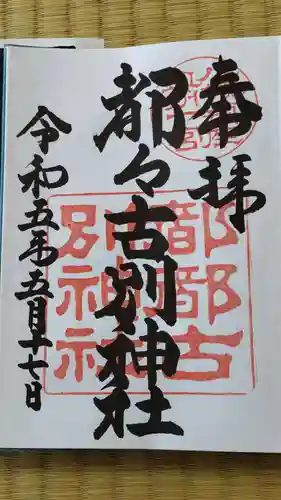 奉拝
都々古別神社
令和五年五月十七日
都都古
別神社